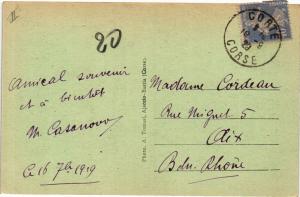 20
CORTE
CORSE
Amical souvenir
et à bientôt
M. Casanova
Ce 16 7bre 1919
Photo. A. Tomasi, Ajaccio-Bastia (Corse).
Madame Cordeau
Rue Mignet 5
Aix
Bdu-Rhône